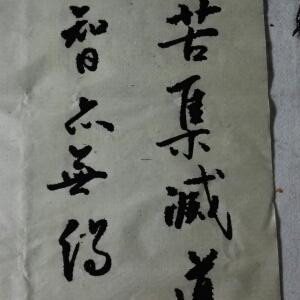 苦集滅道
智亦無得